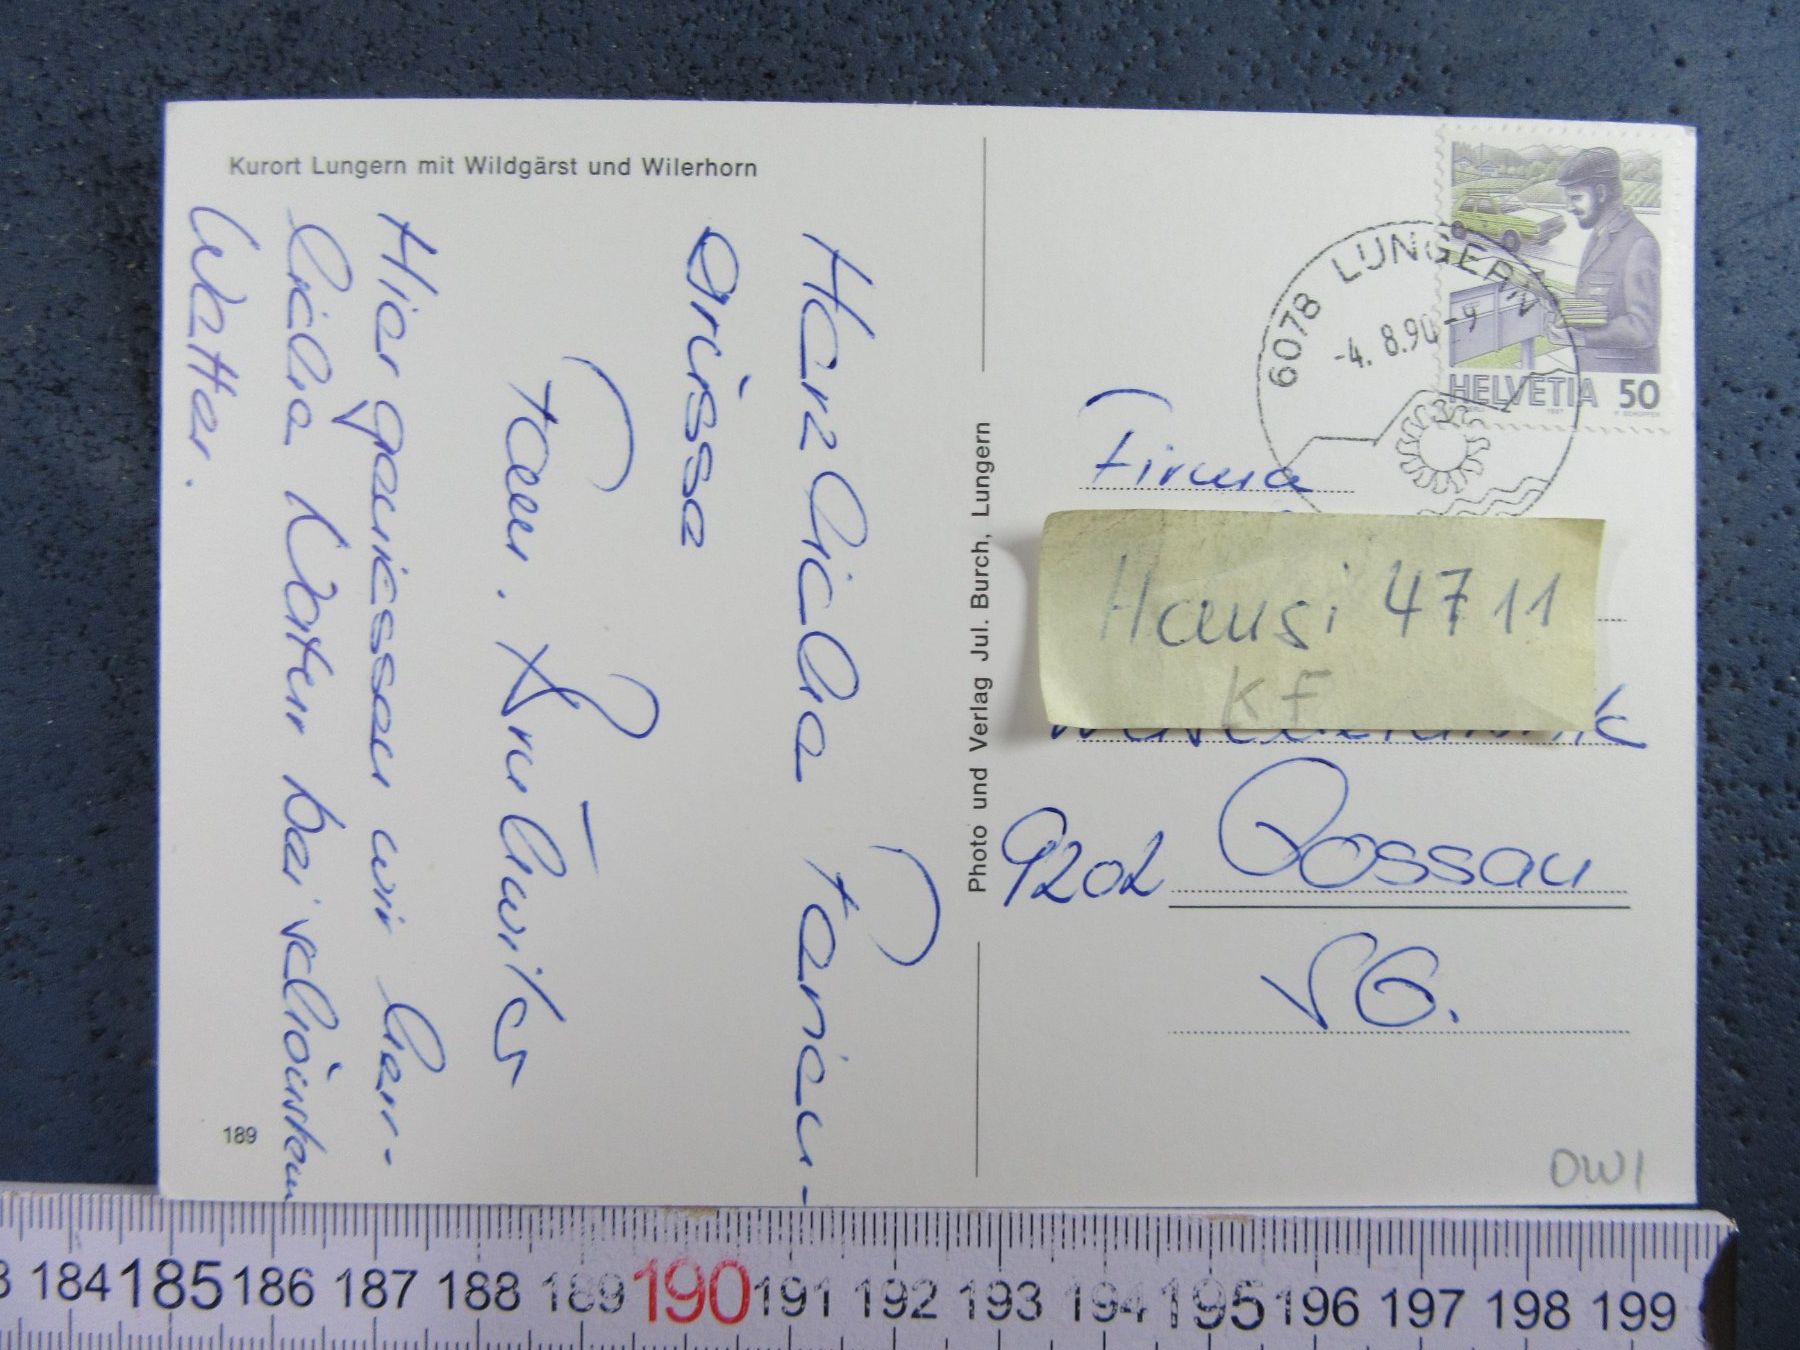 Kurort Lungern mit Wildgärst und Wilerhorn
Herzliche Ferien-
Grüsse
Fam.
Hier geniessen wir herr-
liche Natur bei schönstem
Wetter.
189
Photo und Verlag Jul. Burch, Lungern
6078 LUNGERN
-4. 8.90 -9
HELVETIA 50
Firma
Hansi 4711
KF
9202 Gossau
SG.
OW1
184 185 186 187 188 189 190 191 192 193 194 195 196 197 198 199